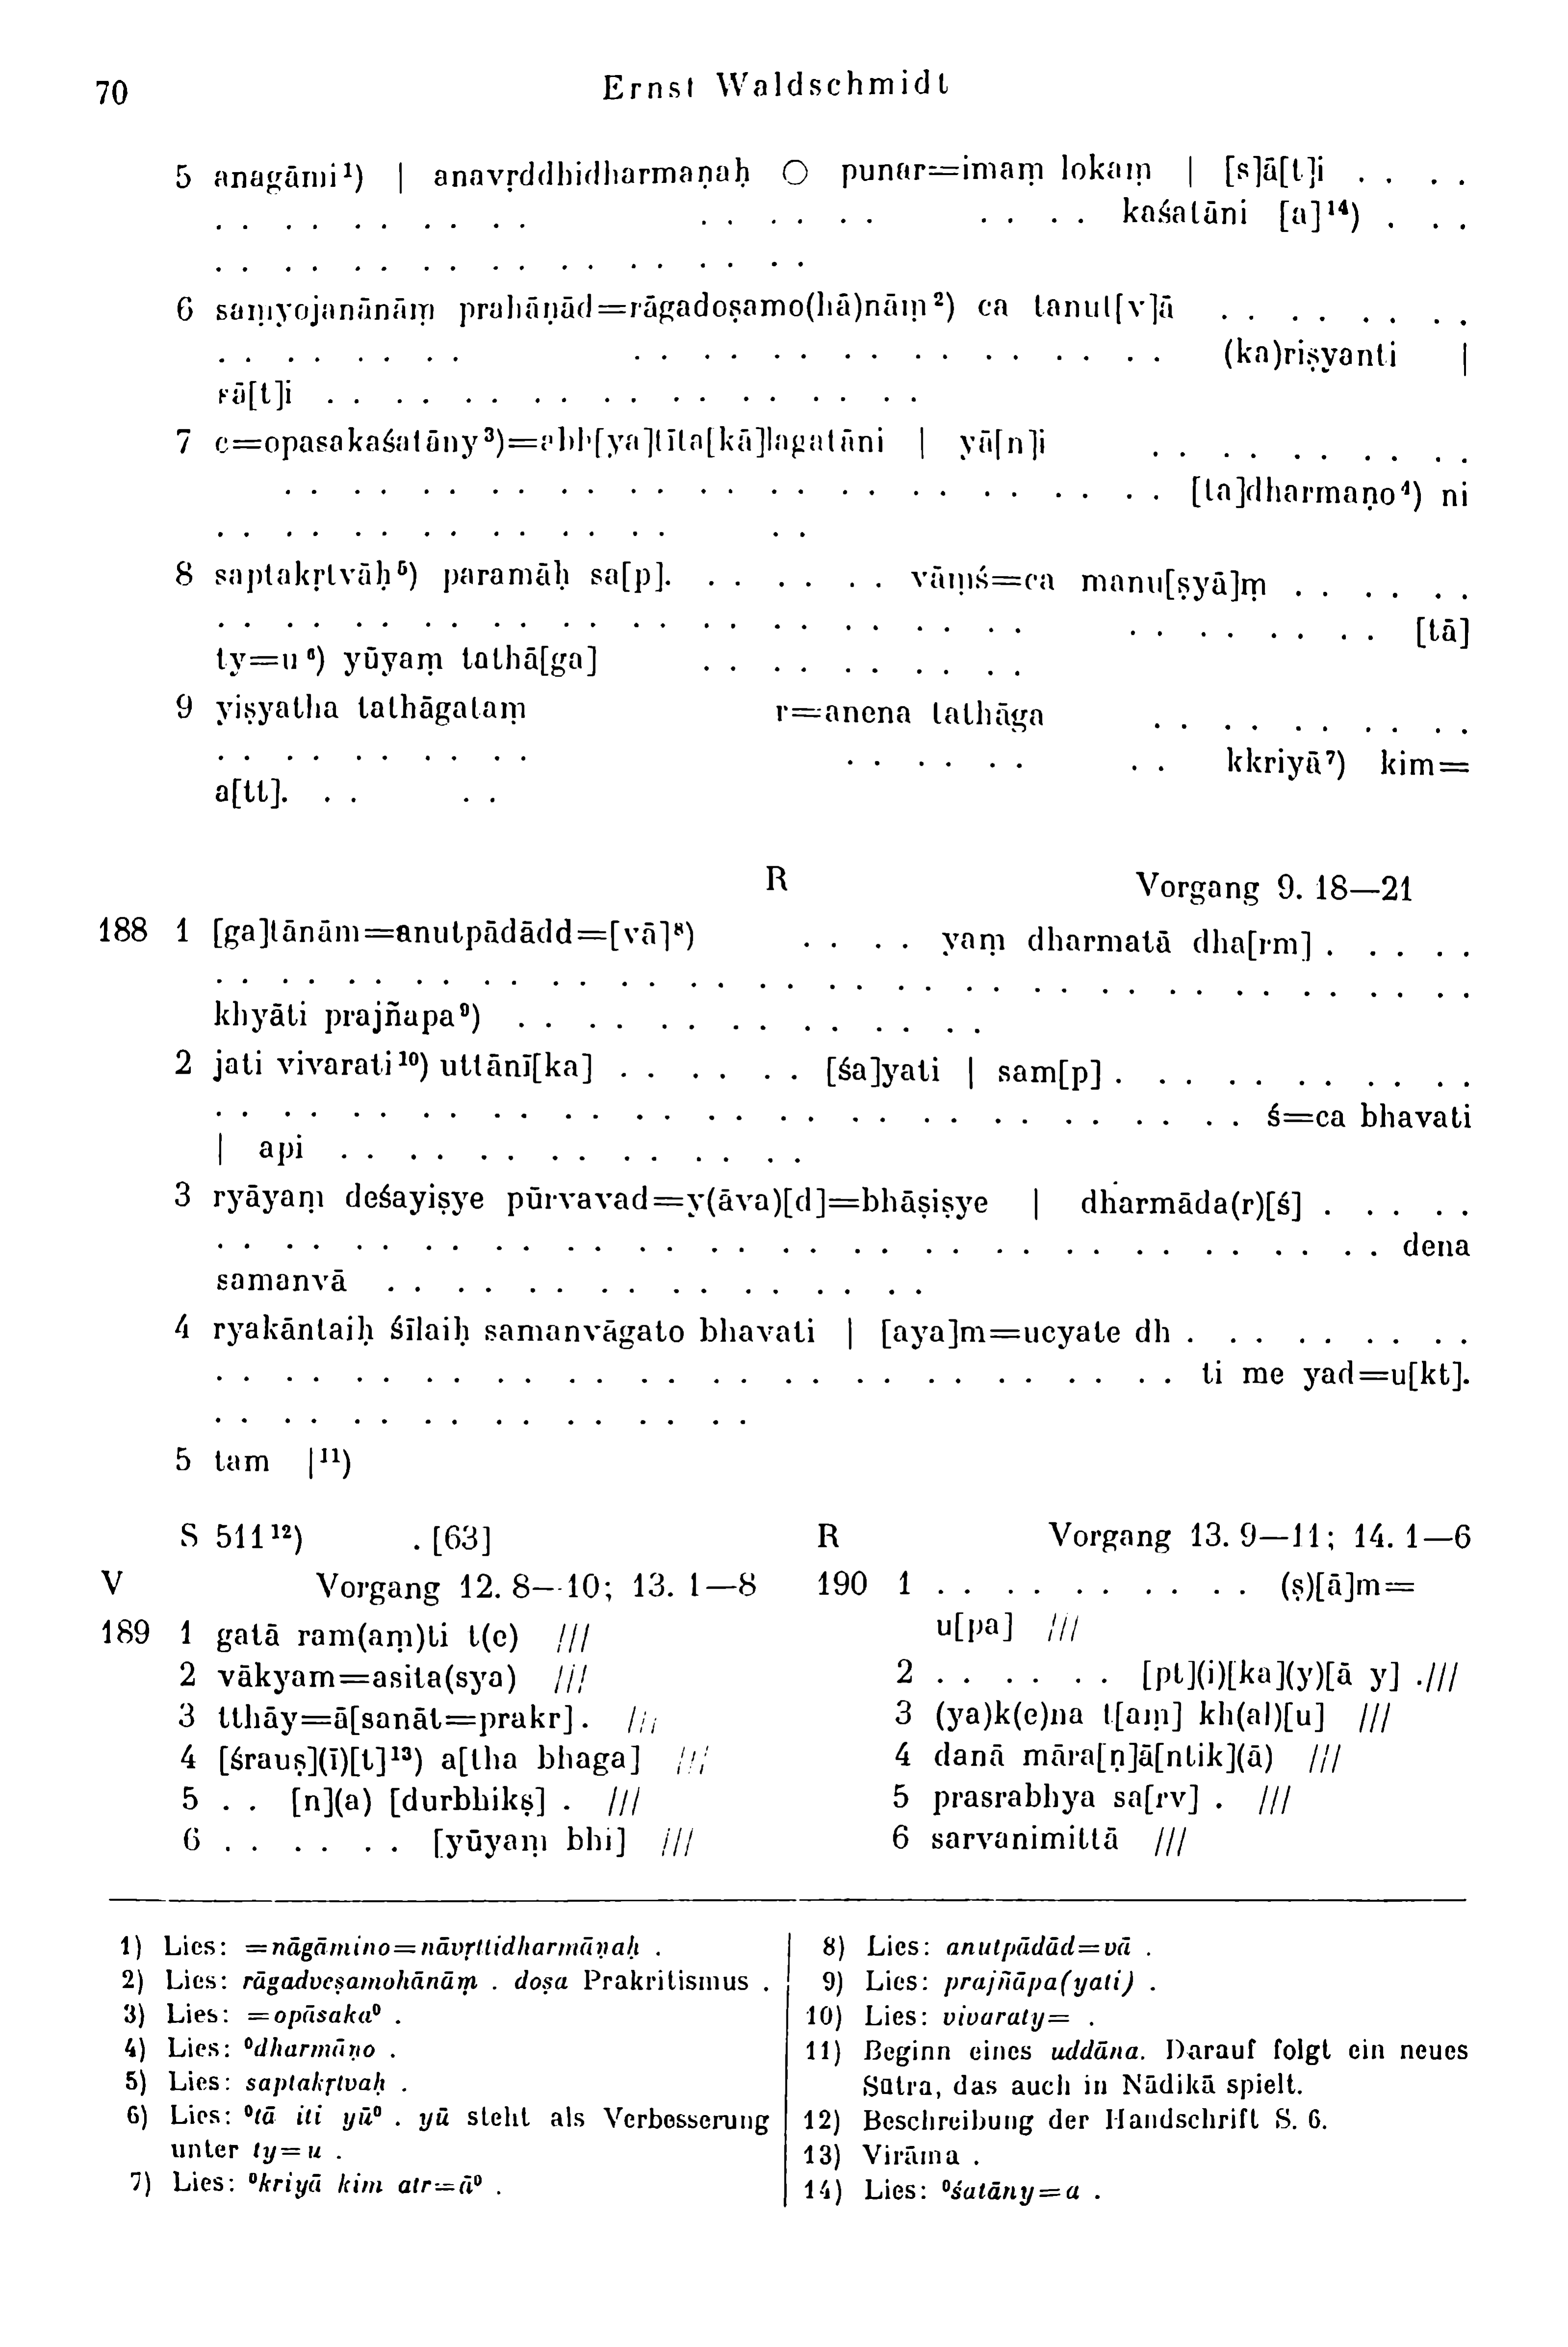 70 Ernst Waldschmidt
5 anagāmi¹) | anavṛddhidharmaṇaḥ ○ punar=imaṃ lokaṃ | [s]ā[t]i . . . .
. . . . . . . . . . . . . . . . . . . . kaśatāni [a]¹⁴) . . .
. . . . . . . . . . . . . . . . . .
6 saṃyojanānāṃ prahāṇād=rāgadoṣamo(hā)nāṃ²) ca tanut[v]ā . . . . . . . .
. . . . . . . . . . . . . . . . . . . . . . . . (ka)riṣyanti |
sā[t]i . . . . . . . . . . . . . . . . . .
7 c=opasakaśatāny³)=abh[ya]tīta[kā]lagatāni | yā[n]i . . . . . . . . . .
. . . . . . . . . . . . . . . . . . . . . . . . . . [ta]dharmaṇo⁴) ni
. . . . . . . . . . . . . . . .
8 saptakṛtvāḥ⁵) paramāḥ sa[p]. . . . . . . vāṃś=ca manu[ṣyā]ṃ . . . . . .
. . . . . . . . . . . . . . . . . . . . . . . . . . . . . . . . [tā]
ty=u⁶) yūyaṃ tathā[ga] . . . . . . . . . .
9 yiṣyatha tathāgataṃ r=anena tathāga . . . . . . . . . .
. . . . . . . . . . . . . . . . . . kkriyā⁷) kim=
a[tt]. . . . .
R Vorgang 9. 18—21
188 1 [ga]tānām=anutpādādd=[vā]⁸) . . . . yaṃ dharmatā dha[rm] . . . . .
. . . . . . . . . . . . . . . . . . . . . . . . . . . . . . . . . . . . .
khyāti prajñapa⁹) . . . . . . . . . . . . . .
2 jati vivarati¹⁰) uttānī[ka] . . . . . . [śa]yati | sam[p] . . . . . . . . . . .
. . . . . . . . . . . . . . . . . . . . . . . . . . . . . . ś=ca bhavati
| api . . . . . . . . . . . . . .
3 ryāyaṃ deśayiṣye pūrvavad=y(āva)[d]=bhāṣiṣye | dharmāda(r)[ś] . . . . .
. . . . . . . . . . . . . . . . . . . . . . . . . . . . . . . . . . dena
samanvā . . . . . . . . . . . . . . . .
4 ryakāntaiḥ śīlaiḥ samanvāgato bhavati | [aya]m=ucyate dh . . . . . . . . .
. . . . . . . . . . . . . . . . . . . . . . . . . . . . ti me yad=u[kt].
. . . . . . . . . . . . . . . .
5 tam |¹¹)
S 511¹²) . [63]
V Vorgang 12. 8—10; 13. 1—8
189 1 gatā ram(aṃ)ti t(e) ///
2 vākyam=asita(sya) ///
3 tthāy=ā[sanāt=prakr]. ///
4 [śrauṣ](ī)[t]¹³) a[tha bhaga] ///
5 . . [n](a) [durbhikṣ] . ///
6 . . . . . . [yūyaṃ bhi] ///
R Vorgang 13. 9—11; 14. 1—6
190 1 . . . . . . . . . . (ṣ)[ā]m=
u[pa] ///
2 . . . . . . [pt](i)[ka](y)[ā y] .///
3 (ya)k(e)na t[aṃ] kh(al)[u] ///
4 danā māra[ṇ]ā[ntik](ā) ///
5 prasrabhya sa[rv] . ///
6 sarvanimittā ///
1) Lies: =nāgāmino=nāvṛttidharmāṇaḥ .
2) Lies: rāgadveṣamohānāṃ . doṣa Prakritismus .
3) Lies: =opāsaka⁰ .
4) Lies: ⁰dharmāṇo .
5) Lies: saptakṛtvaḥ .
6) Lies: ⁰tā iti yū⁰ . yū steht als Verbesserung
unter ty=u .
7) Lies: ⁰kriyā kim atr=ā⁰ .
8) Lies: anutpādād=vā .
9) Lies: prajñāpa(yati) .
10) Lies: vivaraty= .
11) Beginn eines uddāna. Darauf folgt ein neues
Sūtra, das auch in Nādikā spielt.
12) Beschreibung der Handschrift S. 6.
13) Virāma .
14) Lies: ⁰śatāny=a .